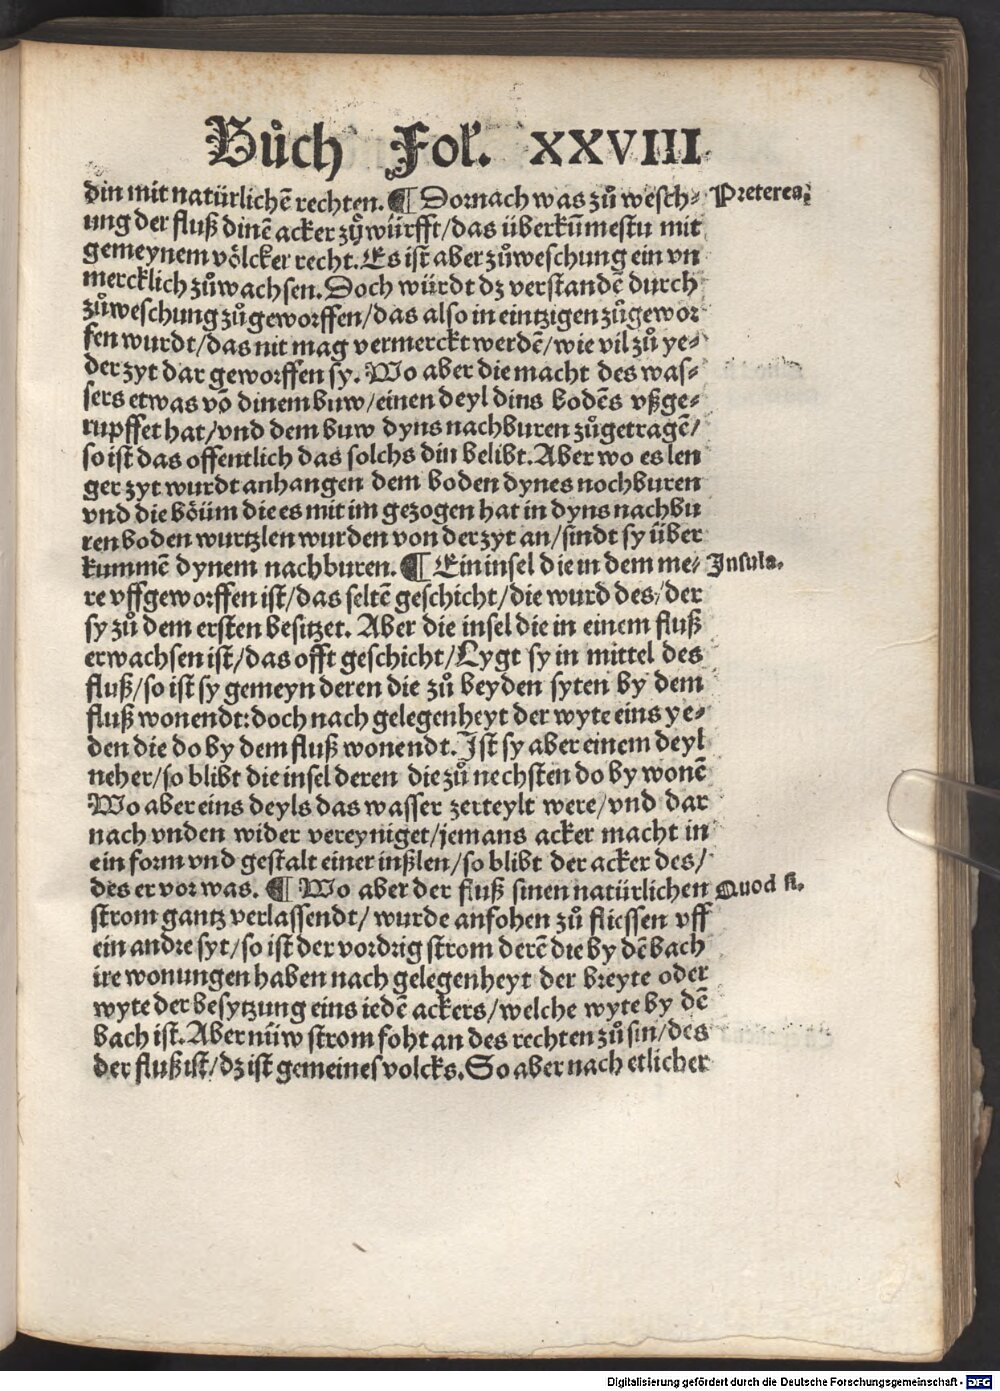 Bůch Fol. XXVIII
din mit natürlichē rechten. ¶ Dornach was zů wesch⸗ Preterea.
ung der fluß dinē acker zů würfft/das überkūmestu mit
gemeynem völcker recht. Es ist aber zůweschung ein vn
mercklich zůwachsen. Doch würdt dz verstandē durch
zůweschung zůgeworffen/das also in eintzigen zůgewor
fen wurdt/das nit mag vermerckt werdē/wie vil zů ye⸗
der zyt dar geworffen sy. Wo aber die macht des was⸗
sers etwas vō dinem buw/einen deyl dins bodēs vßge⸗
rupffet hat/vnd dem buw dyns nachburen zůgetragē/
so ist das offentlich das solchs din belibt. Aber wo es len
ger zyt wurdt anhangen dem boden dynes nochburen
vnd die böüm die es mit im gezogen hat in dyns nachbu
ren boden wurtzlen wurden von der zyt an/sindt sy über
kummē dynem nachburen. ¶ Ein insel die in dem me⸗ Insula.
re vffgeworffen ist/das seltē geschicht/die wurd des/der
sy zů dem ersten besitzet. Aber die insel die in einem fluß
erwachsen ist/das offt geschicht/Lygt sy in mittel des
fluß/so ist sy gemeyn deren die zů beyden syten by dem
fluß wonendt:doch nach gelegenheyt der wyte eins ye⸗
den die do by dem fluß wonendt. Ist sy aber einem deyl
neher/so blibt die insel deren die zů nechsten do by wonē
Wo aber eins deyls das wasser zerteylt were/vnd dar
nach vnden wider vereyniget/jemans acker macht in
ein form vnd gestalt einer inßlen/so blibt der acker des/
des er vor was. ¶ Wo aber der fluß sinen natürlichen Quod si.
strom gantz verlassendt/ wurde anfohen zů fliessen vff
ein andre syt/so ist der vordrig strom derē die by dē bach
ire wonungen haben nach gelegenheyt der breyte oder
wyte der besytzung eins iedē ackers/welche wyte by dē
bach ist. Aber nüw strom foht an des rechten zů sin/des
der fluß ist/dz ist gemeines volcks. So aber nach etlicher
Digitalisierung gefördert durch die Deutsche Forschungsgemeinschaft - DFG